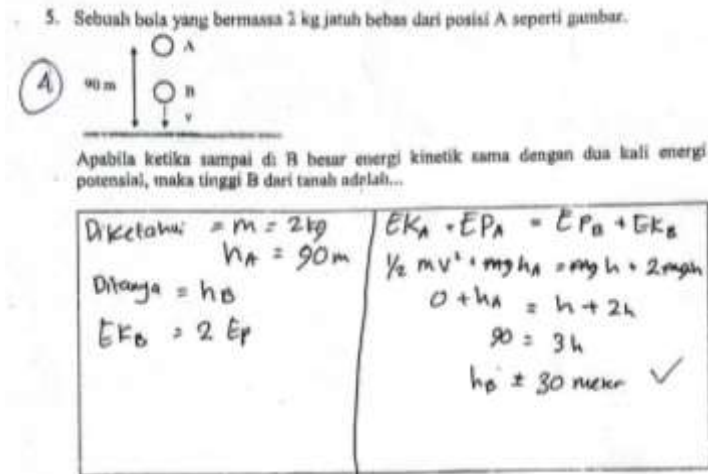 5. Sebuah bola yang bermassa 2 kg jatuh bebas dari posisi A seperti gambar.
A
4
90 m
B
v
Apabila ketika sampai di B besar energi kinetik sama dengan dua kali energi
potensial, maka tinggi B dari tanah adalah...
Diketahui = m = 2 kg
hA = 90 m
Ditanya = hB
EKB = 2 Ep
EKA + EPA = EPB + EKB
1/2 mv² + mghA = mgh + 2mgh
0 + hA = h + 2h
90 = 3h
hB = 30 meter ✓